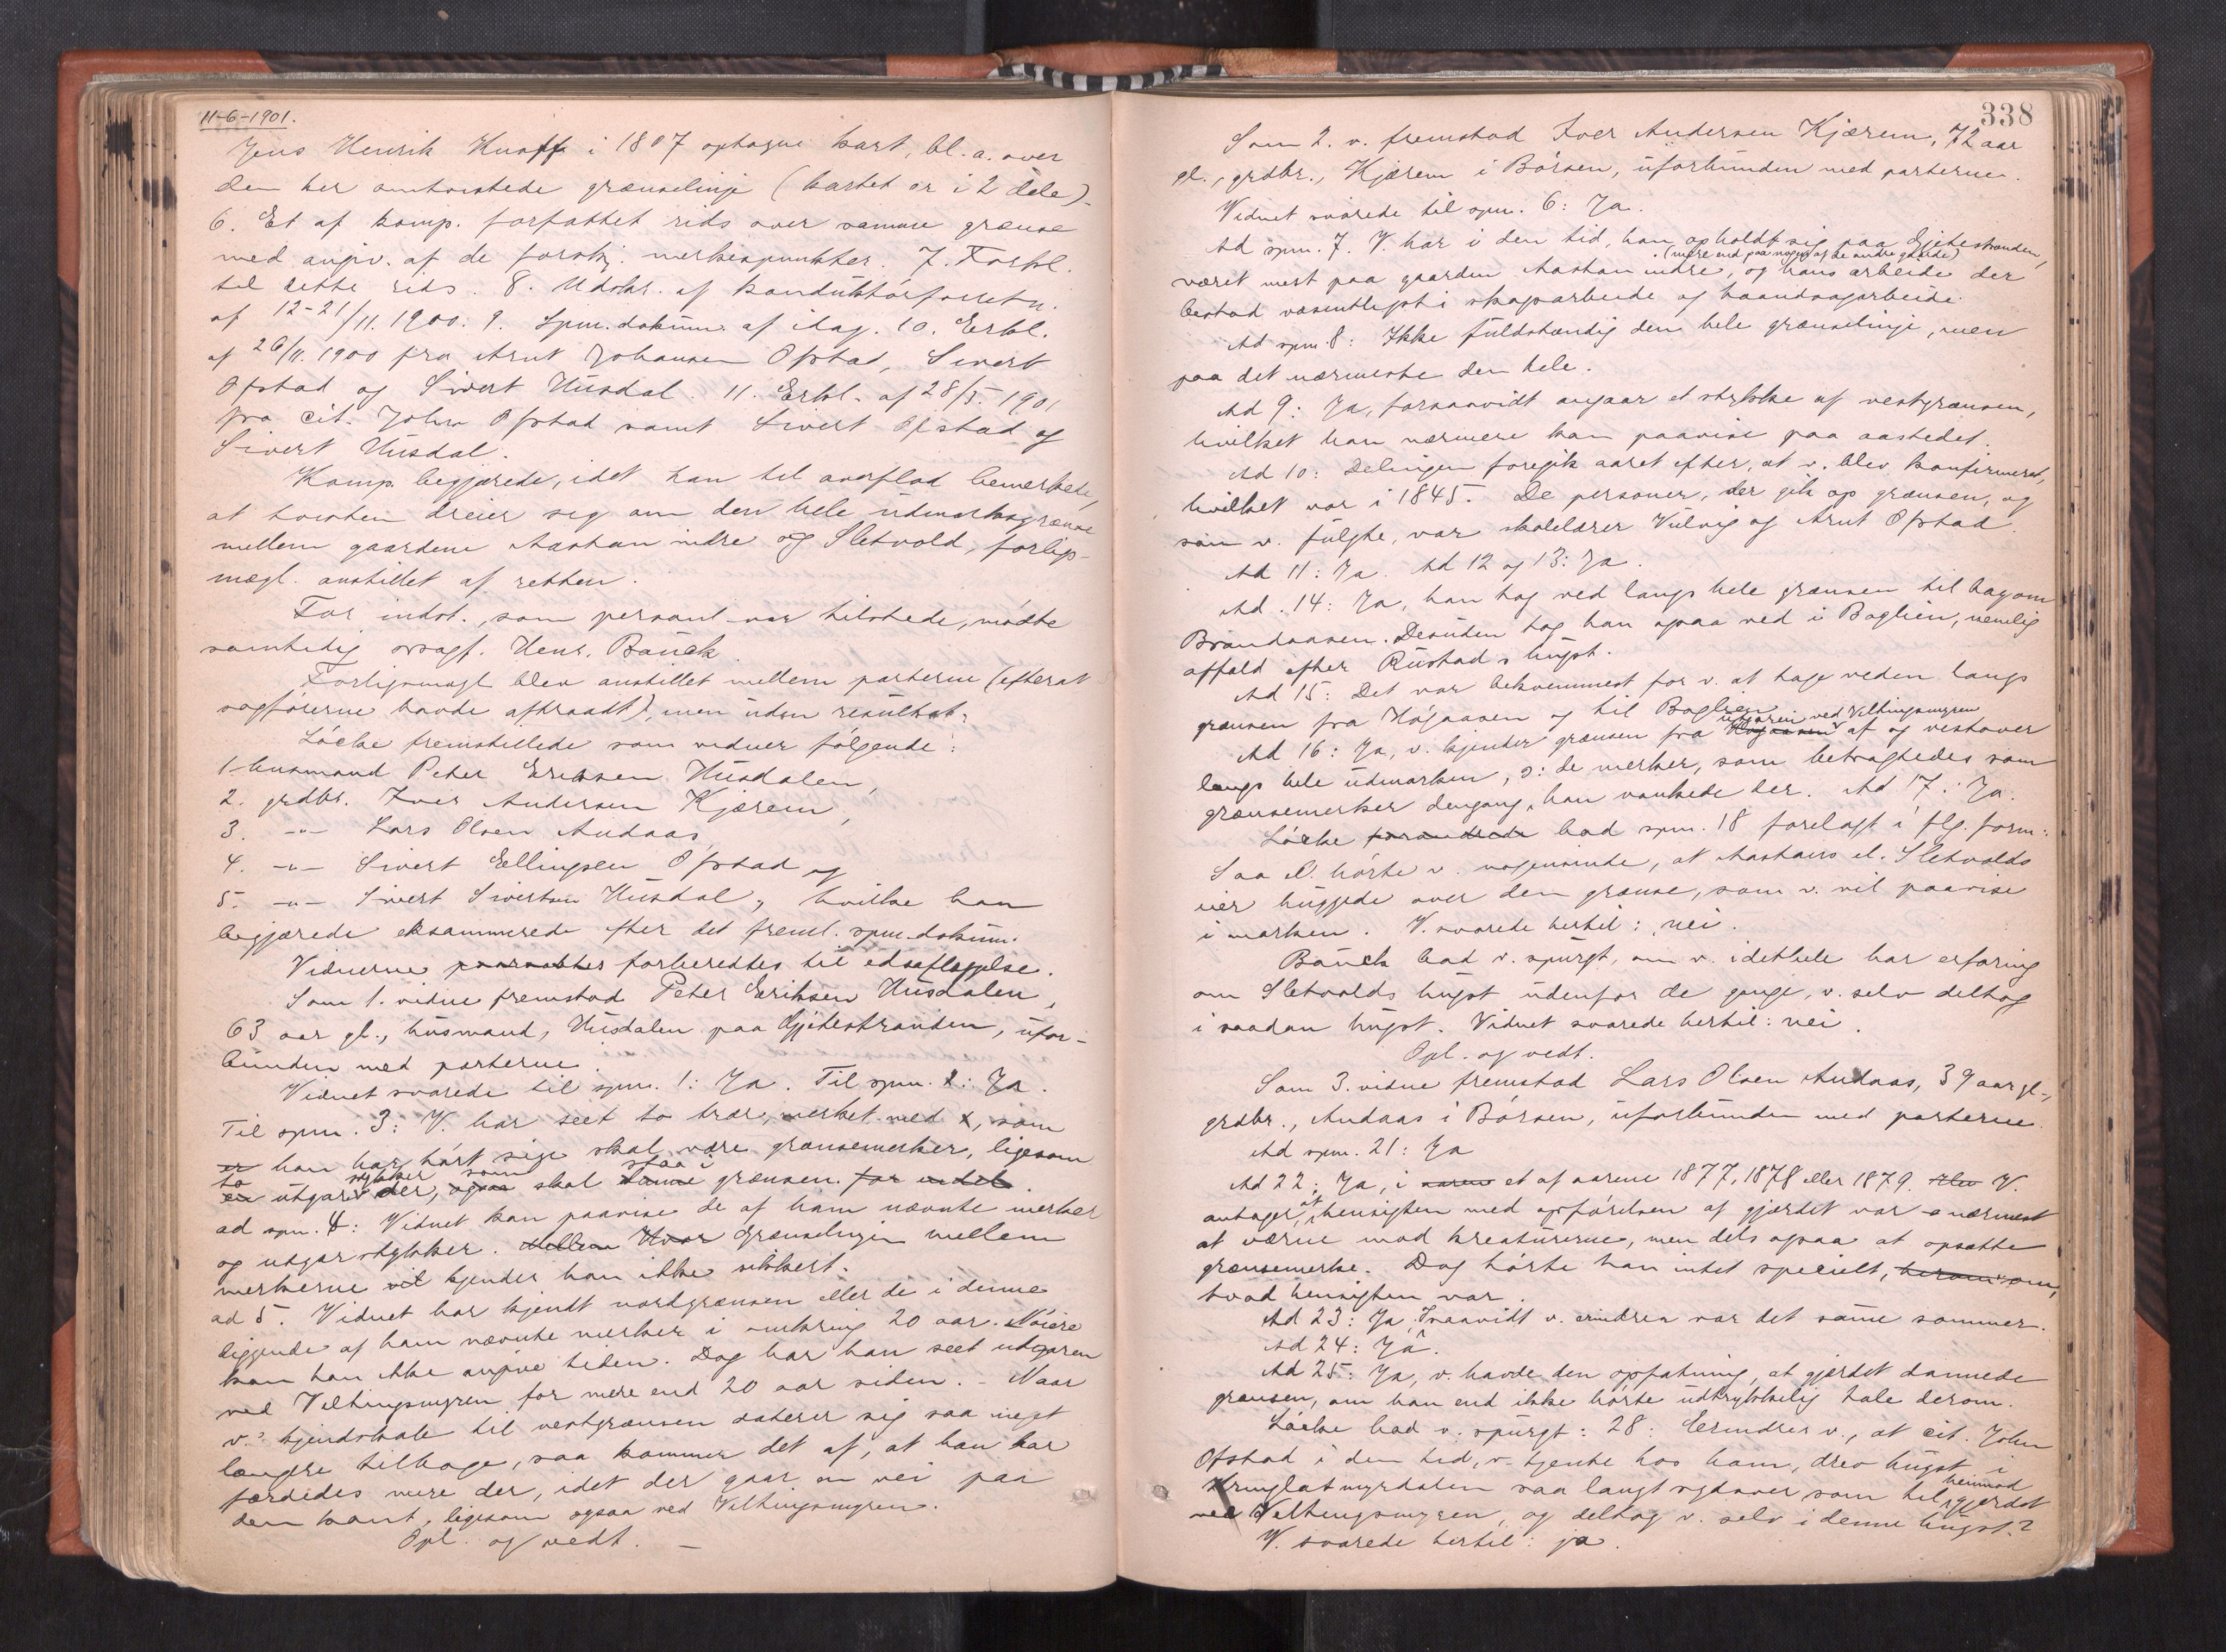 11-6-1901.
Jens Henrik Knoff i 1807 optagne kart, bl. a. over
den her omtvistede grænselinje (kartet er i 2 dele).
6. Et af komp. forfattet rids over samme grænse
med angiv. af de forskj. merkespunkter. 7. Forkl.
til dette rids. 8. Udskr. af konduktörforretn.
af 12-21/11. 1900. 9. Spm. dokum. af idag. 10. Erkl.
af 26/11. 1900 fra Arnt Johansen Ofstad, Sivert
Ofstad og Sivert Husdal. 11. Erkl. af 28/5. 1901
fra cit. John Ofstad samt Sivert Ofstad og
Sivert Husdal.
Komp. begjærede, idet han til overflod bemerkede,
at tvisten dreier seg om den hele udmarksgrænse
mellem gaardene Aastan indre og Sletvold, forligs-
mægl. anstillet af retten.
For indst., som personl. var tilstede, mødte
samtidig ovsagf. Henr. Bauck
Forligsmægl blev anstillet mellem parterne (efterat
sagførerne havde aftraadt), men uden resultat.
Löcke fremstillede som vidner følgende:
1. husmand Peter Eriksen Husdalen,
2. grdbr. Iver Andersen Kjærem,
3. -"- Lars Olsen Andaas,
4. -"- Sivert Ellingsen Ofstad og
5. -"- Sivert Sivertsen Husdal, hvilke han
begjærede eksaminerede efter det freml. spm. dokum.
Vidnerne forberedtes til edsaflæggelse.
Som 1. vidne fremstod Peter Eriksen Husdalen,
63 aar gl., husmand, Husdalen paa Gjetestranden, ufor-
bunden med parterne.
Vidnet svarede til spm. 1: Ja. Til spm. 2: Ja.
Til spm. 3: V. har seet to trær, merket med x, som
er han har hørt sige skal være grænsemerker, ligesom
to stykker som staa i
en utgar der, ogsaa skal danne grænsen for endel.
ad spm. 4: Vidnet kan paavise de af ham nævnte merker
og utgarstykker. Mellem Hvor Grænselinjen mellem
merkerne vil kjender han ikke sikkert.
ad 5. Vidnet har kjendt nordgrænsen eller de i denne
liggende af ham nævnte merker i omkring 20 aar. Nöiere
kan han ikke angive tiden. Dog har han seet udgaren
ved Veltingsmyren for mere end 20 aar siden. - Naar
v.s kjendskab til vestgrænsen daterer sig saa meget
længere tilbage, saa kommer det af, at han har
færdedes mere der, idet der gaar en vei paa
den kant, ligesom ogsaa ved Veltingsmyren.
Opl. og vedt. -
338
Som 2. v. fremstod Iver Andersen Kjærem, 72 aar
gl., grdbr., Kjærem i Börsen, uforbunden med parterne.
Vidnet svarede til spm. 6: Ja.
Ad spm. 7. V. har i den tid, han opholdt sig paa Gjetestranden,
(mere end paa nogen af de andre gaarde)
været mest paa gaarden Aastan indre, og hans arbeide der
bestod væsentligst i skogsarbeide og haandsagarbeide.
Ad spm. 8: Ikke fuldstændig den hele grænselinje, men
paa det nærmeste den hele.
Ad 9: Ja, forsaavidt angaar et stykke af vestgrænsen,
hvilket han nærmere kan paavise paa aastedet.
Ad 10: Delingen foregik aaret efter, at v. blev konfirmeret,
hvilket var i 1845. De personer, der gik op grænsen, og
som v. fulgte, var skolelærer Vulvig og Arnt Ofstad.
Ad 11: Ja. Ad 12 og 13: Ja.
Ad. 14: Ja, han tog ved langs hele grænsen til bagom
Brandaasen. Desuden tog han ogsaa ved i Baglien, nemlig
affald efter Rustads hugst.
Ad 15: Det var bekvemmest for v. at tage veden langs
grænsen fra Högaasen og til Baglien.
utgaren ved Veltingsmyren
Ad 16: Ja, v. kjender grænsen fra Högaasen af og vestover
langs hele udmarken, ɔ: de merker, som betragtedes som
grænsemerker dengang, han vankede der. Ad 17: Ja.
Löcke forandrede bad spm. 18 forelagt i flg. form:
Saa el. hørte v. nogensinde, at Aastans el. Sletvolds
eier huggede over den grænse, som v. vil paavise
i marken. V. svarede hertil: nei.
Bauck bad v. spurgt, om v. idethele har erfaring
om Sletvolds hugst udenfor de gange, v. selv deltog
i saadan hugst. Vidnet svarede hertil: nei.
Opl. og vedt.
Som 3. vidne fremstod Lars Olsen Andaas, 39 aar gl.,
grdbr., Andaas i Börsen, uforbunden med parterne.
Ad spm. 21: Ja
Ad 22: Ja, i et af aarene 1877, 1878 eller 1879. V.
antager, at hensigten med opførelsen af gjærdet var nærmest
at værne mod kreaturerne, men dels ogsaa at opsætte
grænsemerke. Dog hørte han intet specielt, herom om,
hvad hensigten var.
Ad 23: Ja, Saavidt v. erindrer var det samme sommer.
Ad 24: Ja.
Ad 25: Ja, v. havde den opfatning, at gjærdet dannede
grænsen, om han end ikke hørte udtrykkelig tale derom.
Löcke bad v. spurgt: 28: Erindrer v., at cit. John
Ofstad i den tid, v. tjente hos ham, drev hugst i
heimod
Kringlatmyrdalen saa langt sydover som til gjærdet
ved Veltingsmyren, og deltog v. selv i denne hugst?
V. svarede hertil: ja.